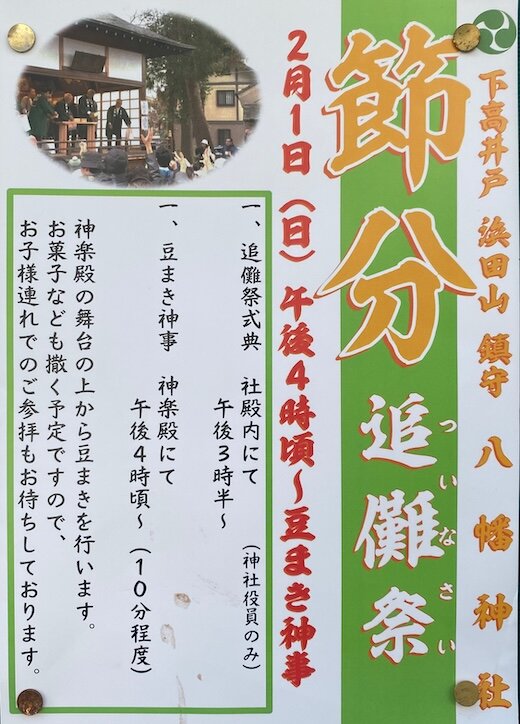 下高井戸 浜田山 鎮守 八幡神社
節分 追儺祭
ついなさい
2月1日(日)午後4時頃~豆まき神事
一、追儺祭式典 社殿内にて (神社役員のみ)
午後3時半~
一、豆まき神事 神楽殿にて
午後4時頃~(10分程度)
神楽殿の舞台の上から豆まきを行います。
お菓子なども撒く予定ですので、
お子様連れでのご参拝もお待ちしております。